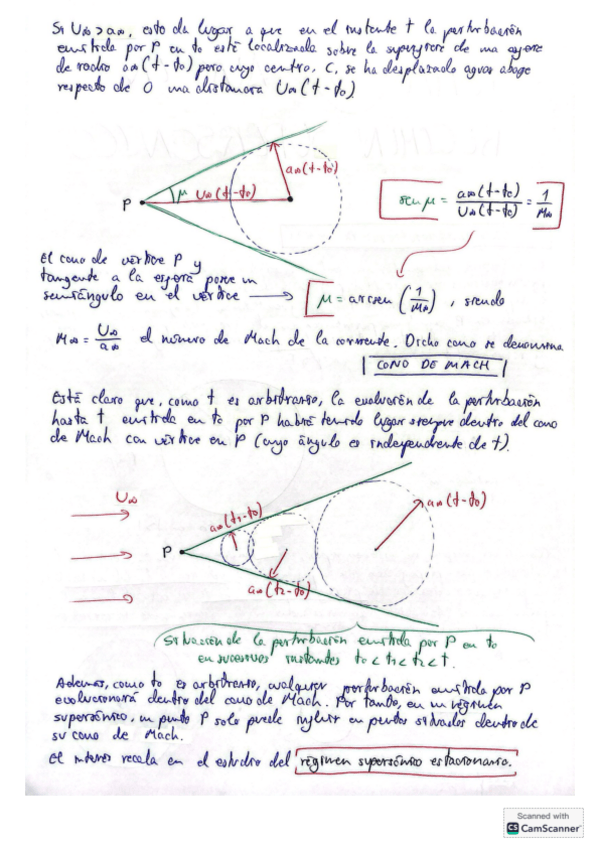 Si U∞>a∞, esto da lugar a que en el instante t la perturbación
emitida por P en to está localizada sobre la superficie de una esfera
de radio a∞(t-to) pero cuyo centro, C, se ha desplazado aguas abajo
respecto de O una distancia U∞(t-to)
P
μ
U∞(t-to)
a∞(t-to)
sen μ = a∞(t-to) / U∞(t-to) = 1/M∞
el cono de vértice P y
tangente a la esfera posee un
semiángulo en el vértice → μ = arcsen (1/M∞) , siendo
M∞ = U∞/a∞ el número de Mach de la corriente. Dicho cono se denomina
CONO DE MACH
Está claro que, como t es arbitrario, la evolución de la perturbación
hasta t, emitida en to por P habrá tenido lugar siempre dentro del cono
de Mach con vértice en P (cuyo ángulo es independiente de t).
U∞
P
a∞(t1-to)
a∞(t2-to)
a∞(t-to)
Situación de la perturbación emitida por P en to
en sucesivos instantes to < t1 < t2 < t.
Además, como to es arbitrario, cualquier perturbación emitida por P
evolucionará dentro del cono de Mach. Por tanto, en un régimen
supersónico, un punto P solo puede influir en puntos situados dentro de
su cono de Mach.
El interés recala en el estudio del régimen supersónico estacionario.
Scanned with
CS CamScanner